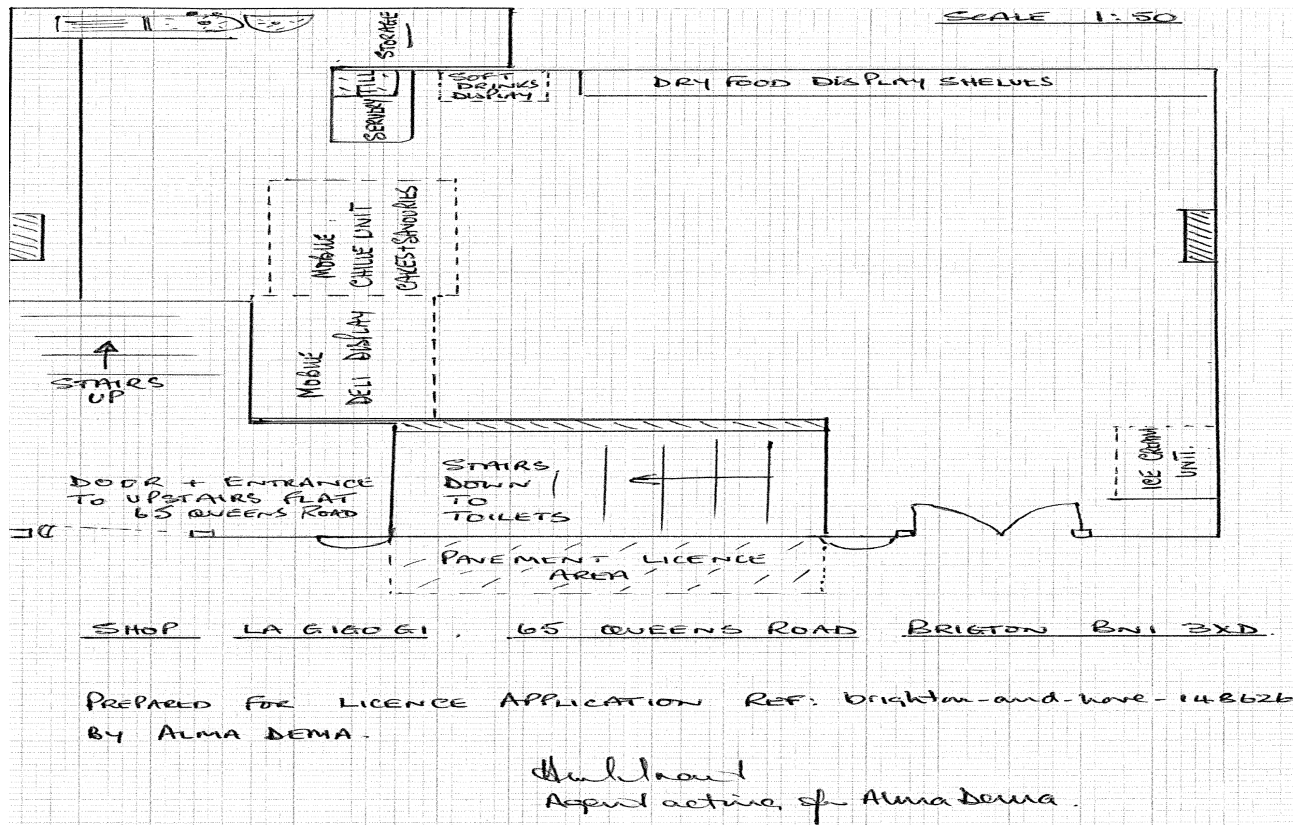 SCALE 1:50
STORAGE
TILL
SERVERY
SOFT
DRINKS
DISPLAY
DRY FOOD DISPLAY SHELVES
MOBILE
CHILLE UNIT
CAKES+SAVOURIES
MOBILE
DELI DISPLAY
STAIRS
UP
ICE CREAM
UNIT.
STAIRS
DOWN
TO
TOILETS
DOOR + ENTRANCE
TO UPSTAIRS FLAT
65 QUEENS ROAD
PAVEMENT LICENCE
AREA
SHOP LA GIGOGI. 65 QUEENS ROAD BRIGTON BN1 3XD.
PREPARED FOR LICENCE APPLICATION REF: brighton-and-hove-148626
BY ALMA DEMA.
Agent acting for Alma Dema.